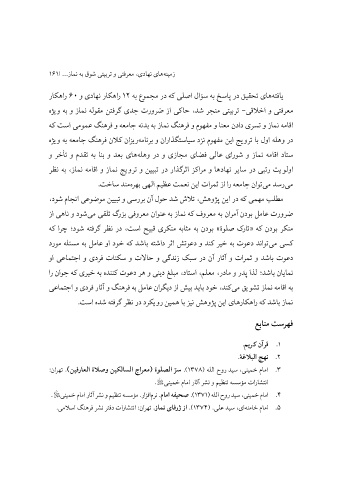 زمینه‌های نهادی، معرفتی و تربیتی شوق به نماز... /۱۶۱
یافته‌های تحقیق در پاسخ به سؤال اصلی که در مجموع به ۱۲ راهکار نهادی و ۶۰ راهکار
معرفتی و اخلاقی- تربیتی منجر شد، حاکی از ضرورت جدی گرفتن مقوله نماز و به ویژه
اقامه نماز و تسری دادن معنا و مفهوم و فرهنگ نماز به بدنه جامعه و فرهنگ عمومی است که
در وهله اول با ترویج این مفهوم نزد سیاستگذاران و برنامه‌ریزان کلان فرهنگ جامعه به ویژه
ستاد اقامه نماز و شورای عالی فضای مجازی و در وهله‌های بعد و بنا به تقدم و تأخر و
اولویت رتبی در سایر نهادها و مراکز اثرگذار در تبیین و ترویج نماز و اقامه نماز، به نظر
می‌رسد می‌توان جامعه را از ثمرات این نعمت عظیم الهی بهره‌مند ساخت.
مطلب مهمی که در این پژوهش، تلاش شد حول آن بررسی و تبیین موضوعی انجام شود،
ضرورت عامل بودن آمران به معروف که نماز به عنوان معروفی بزرگ تلقی می‌شود و ناهی از
منکر بودن که «تارک صلوة» بودن به مثابه منکری قبیح است، در نظر گرفته شود؛ چرا که
کسی می‌تواند دعوت به خیر کند و دعوتش اثر داشته باشد که خود او عامل به مسئله مورد
دعوت باشد و ثمرات و آثار آن در سبک زندگی و حالات و سکنات فردی و اجتماعی او
نمایان باشد؛ لذا پدر و مادر، معلم، استاد، مبلغ دینی و هر دعوت کننده به خیری که جوان را
به اقامه نماز تشویق می‌کند، خود باید بیش از دیگران عامل به فرهنگ و آثار فردی و اجتماعی
نماز باشد که راهکارهای این پژوهش نیز با همین رویکرد در نظر گرفته شده است.
فهرست منابع
۱. قرآن کریم.
۲. نهج البلاغة.
۳. امام خمینی، سید روح الله (۱۳۷۸). سرّ الصلوة (معراج السالکین وصلاة العارفین). تهران:
انتشارات مؤسسه تنظیم و نشر آثار امام خمینیﷺ.
۴. امام خمینی، سید روح الله (۱۳۷۱). صحیفه امام. نرم‌افزار. مؤسسه تنظیم و نشر آثار امام خمینیﷺ.
۵. امام خامنه‌ای، سید علی. (۱۳۷۴). از ژرفای نماز. تهران: انتشارات دفتر نشر فرهنگ اسلامی.